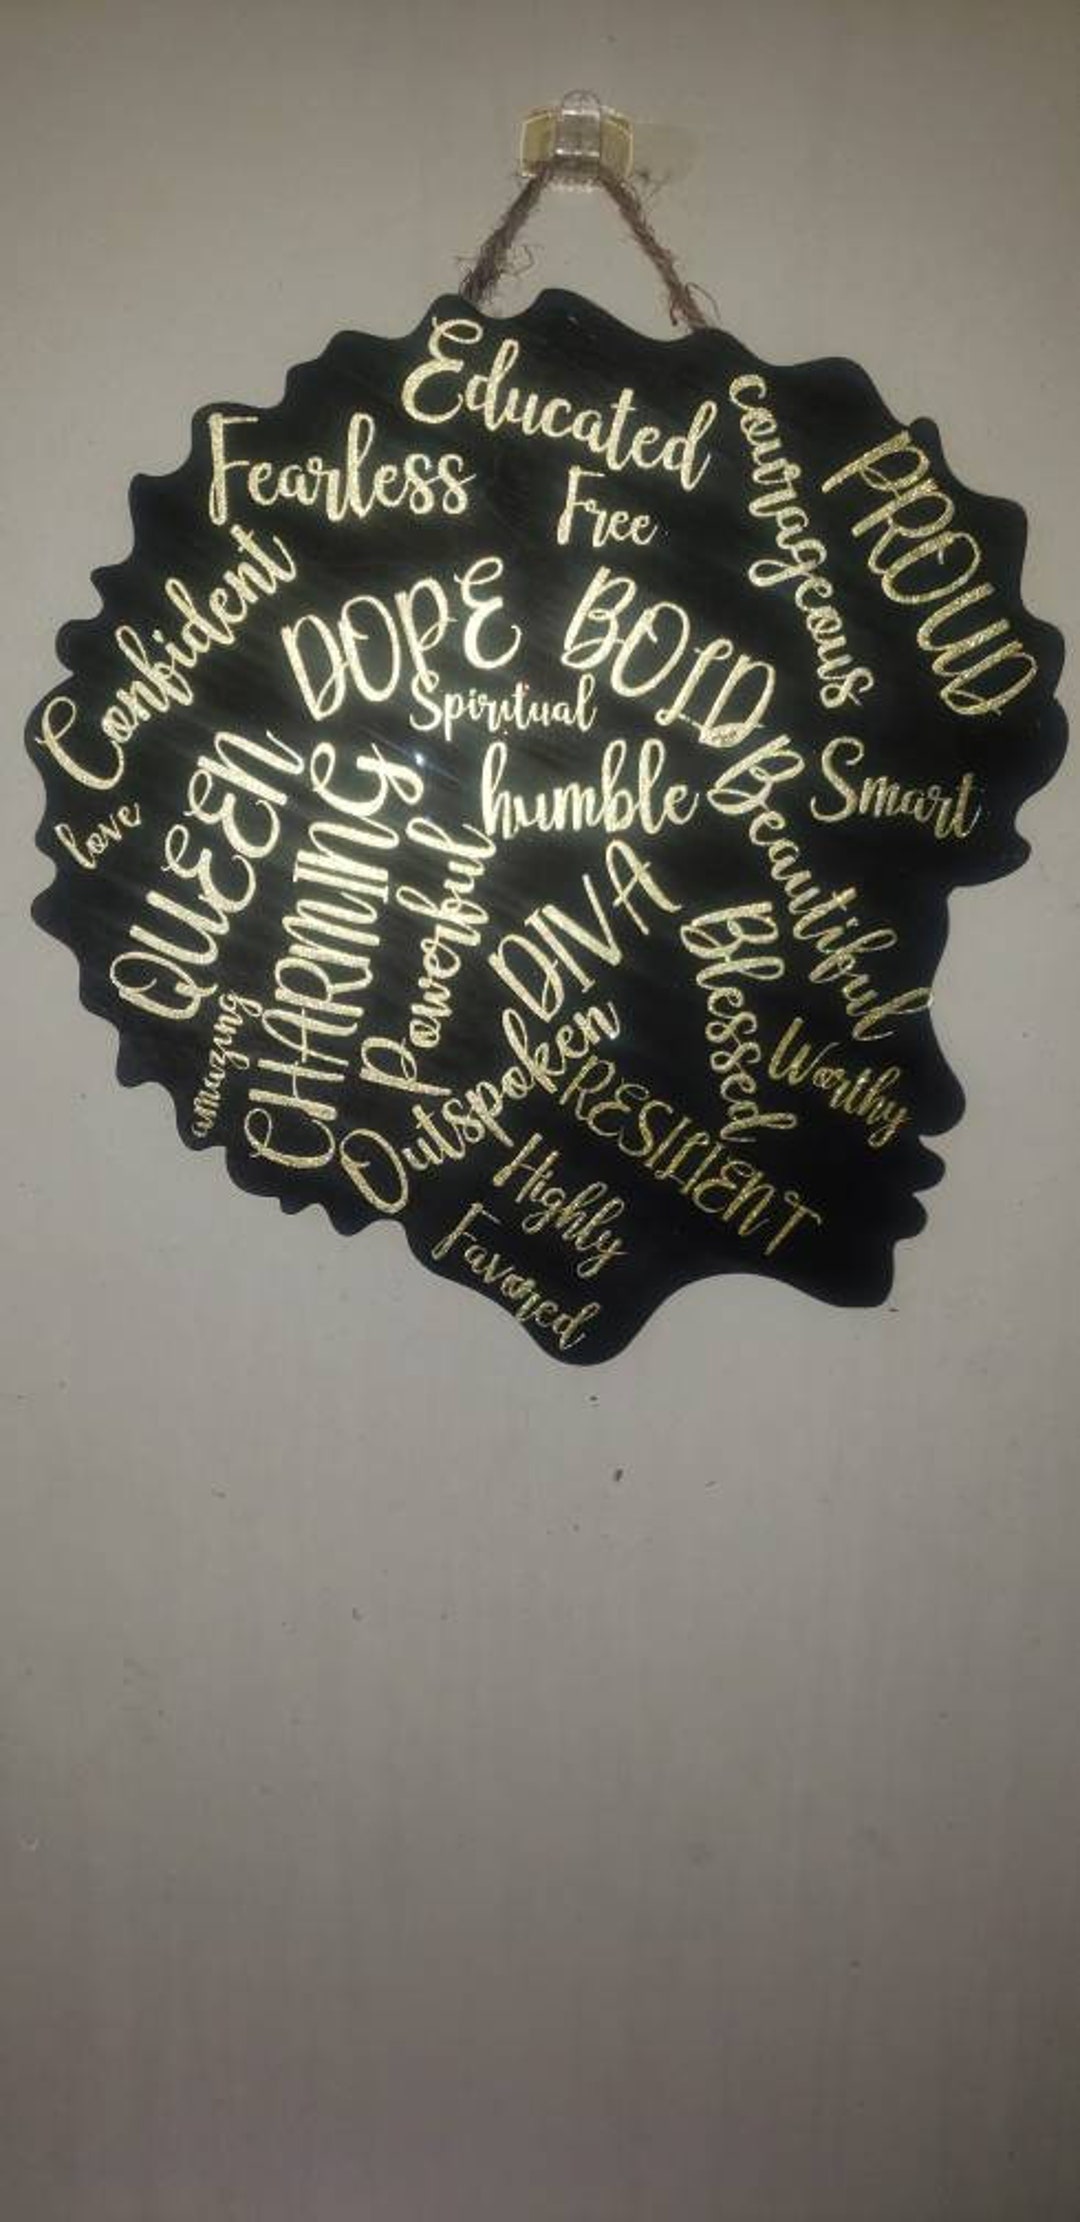 Educated
Fearless
Free
courageous
PROUD
Confident
DOPE
BOLD
Spiritual
love
QUEEN
CHARMING
humble
Beautiful
Smart
Powerful
DIVA
Blessed
amazing
Outspoken
RESILIENT
Worthy
Highly
Favored